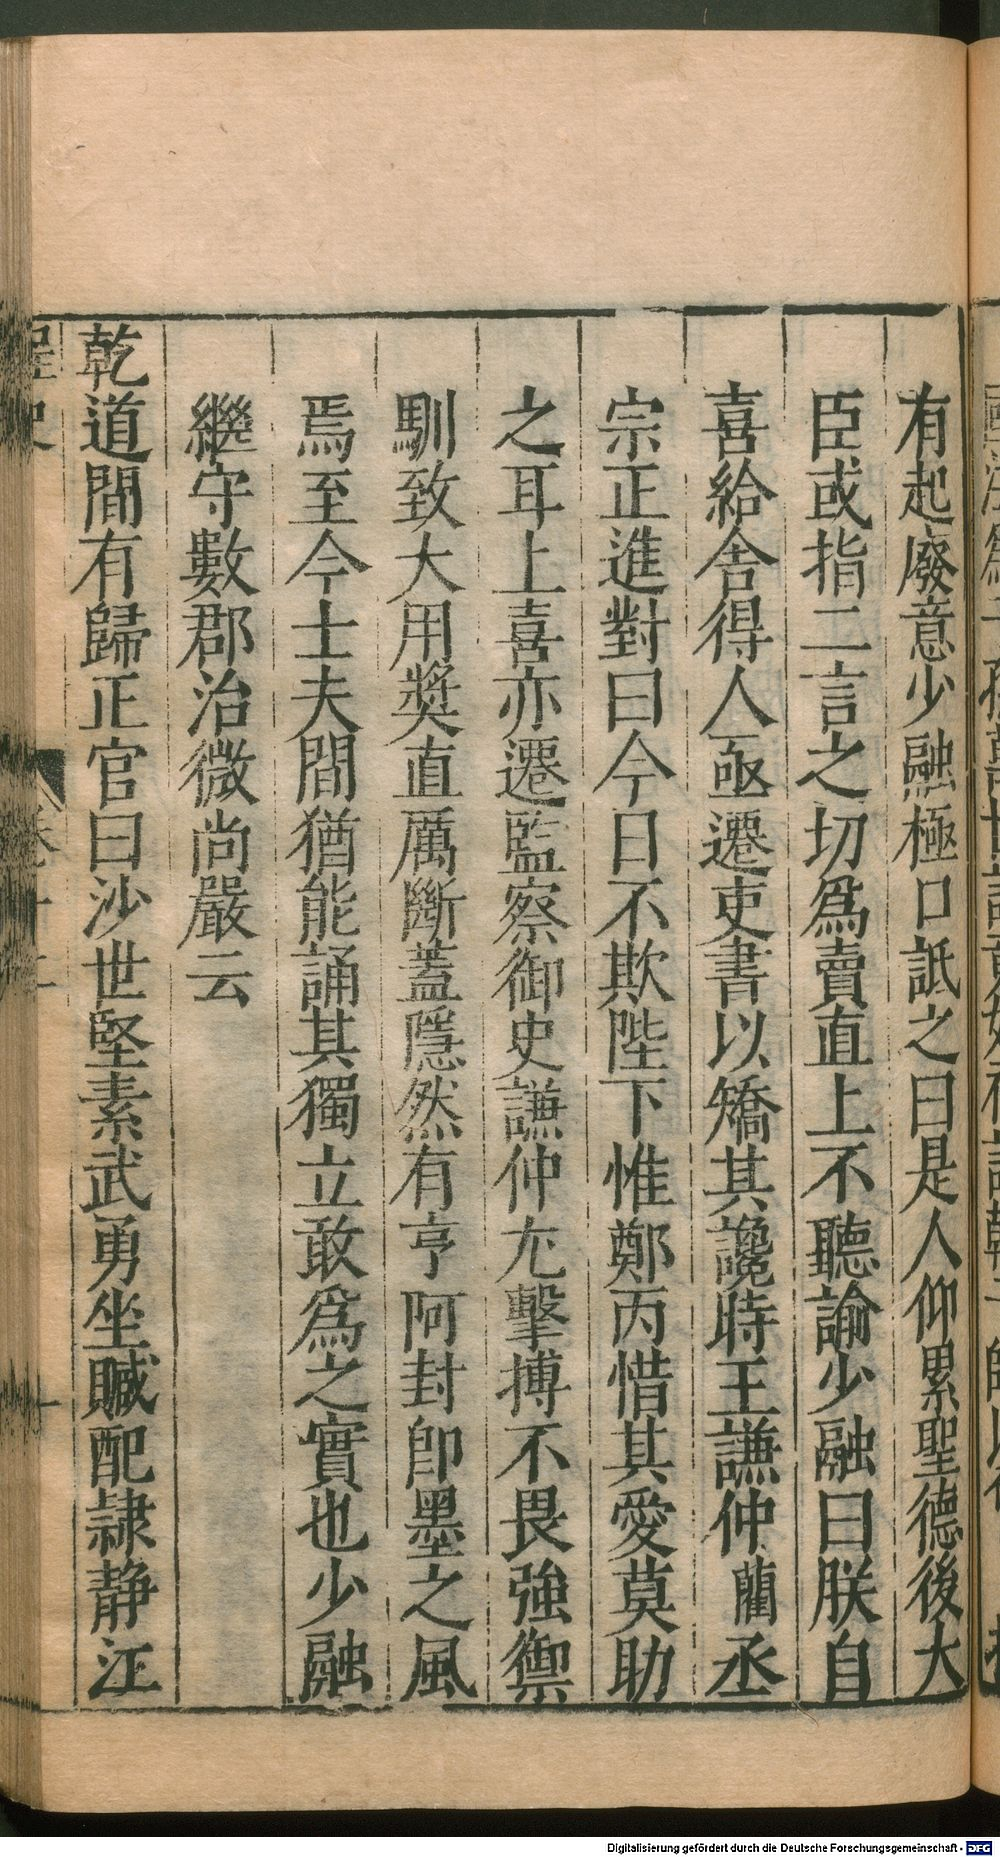 有起廢意少融極口詆之曰是人仰累聖德後大
臣或指二言之切爲賣直上不聽諭少融曰朕自
喜給舍得人亟遷吏書以矯其讒時王謙仲藺丞
宗正進對曰今日不欺陛下惟鄭丙惜其愛莫助
之耳上喜亦遷監察御史謙仲尤擊搏不畏強禦
馴致大用奬直厲斷蓋隱然有亨阿封卽墨之風
焉至今士夫間猶能誦其獨立敢爲之實也少融
繼守數郡治微尚嚴云
乾道間有歸正官曰沙世堅素武勇坐贓配隷静江
Digitalisierung gefördert durch die Deutsche Forschungsgemeinschaft - DFG